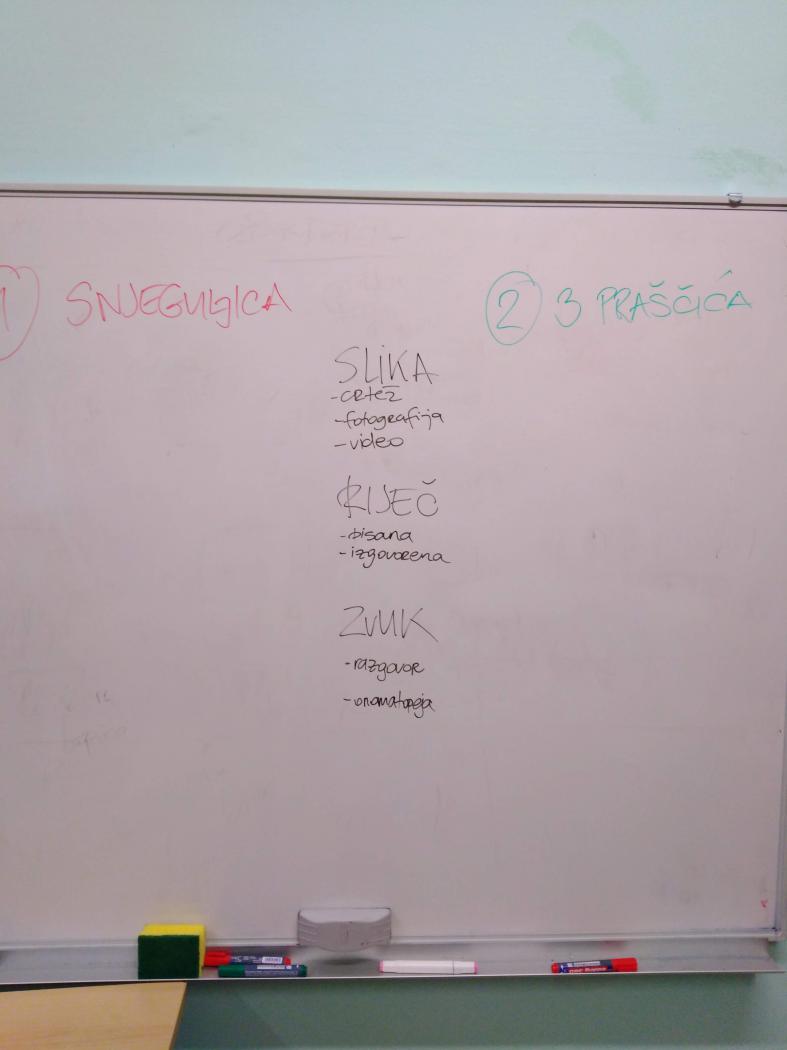 1 SNJEGULJICA
2 3 PRAŠČIĆA
SLIKA
- CRTEŽ
- fotografija
- video
RIJEČ
- pisana
- izgovorena
ZVUK
- razgovor
- onomatopeja